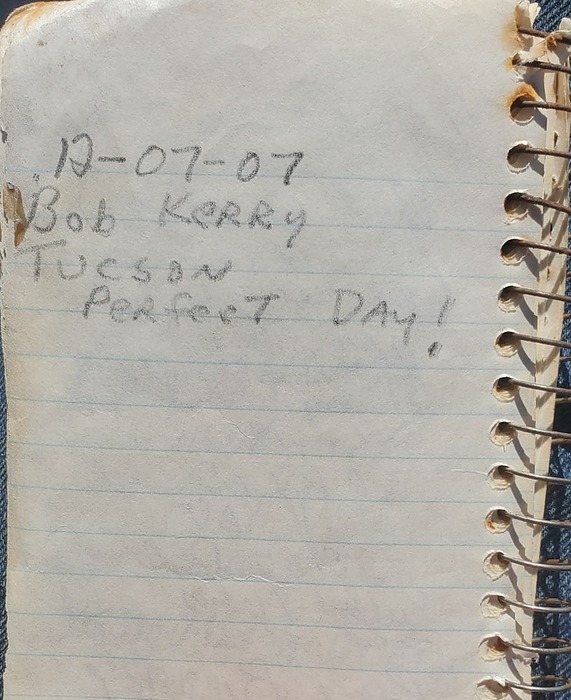 12-07-07
Bob Kerry
Tucson
Perfect Day!